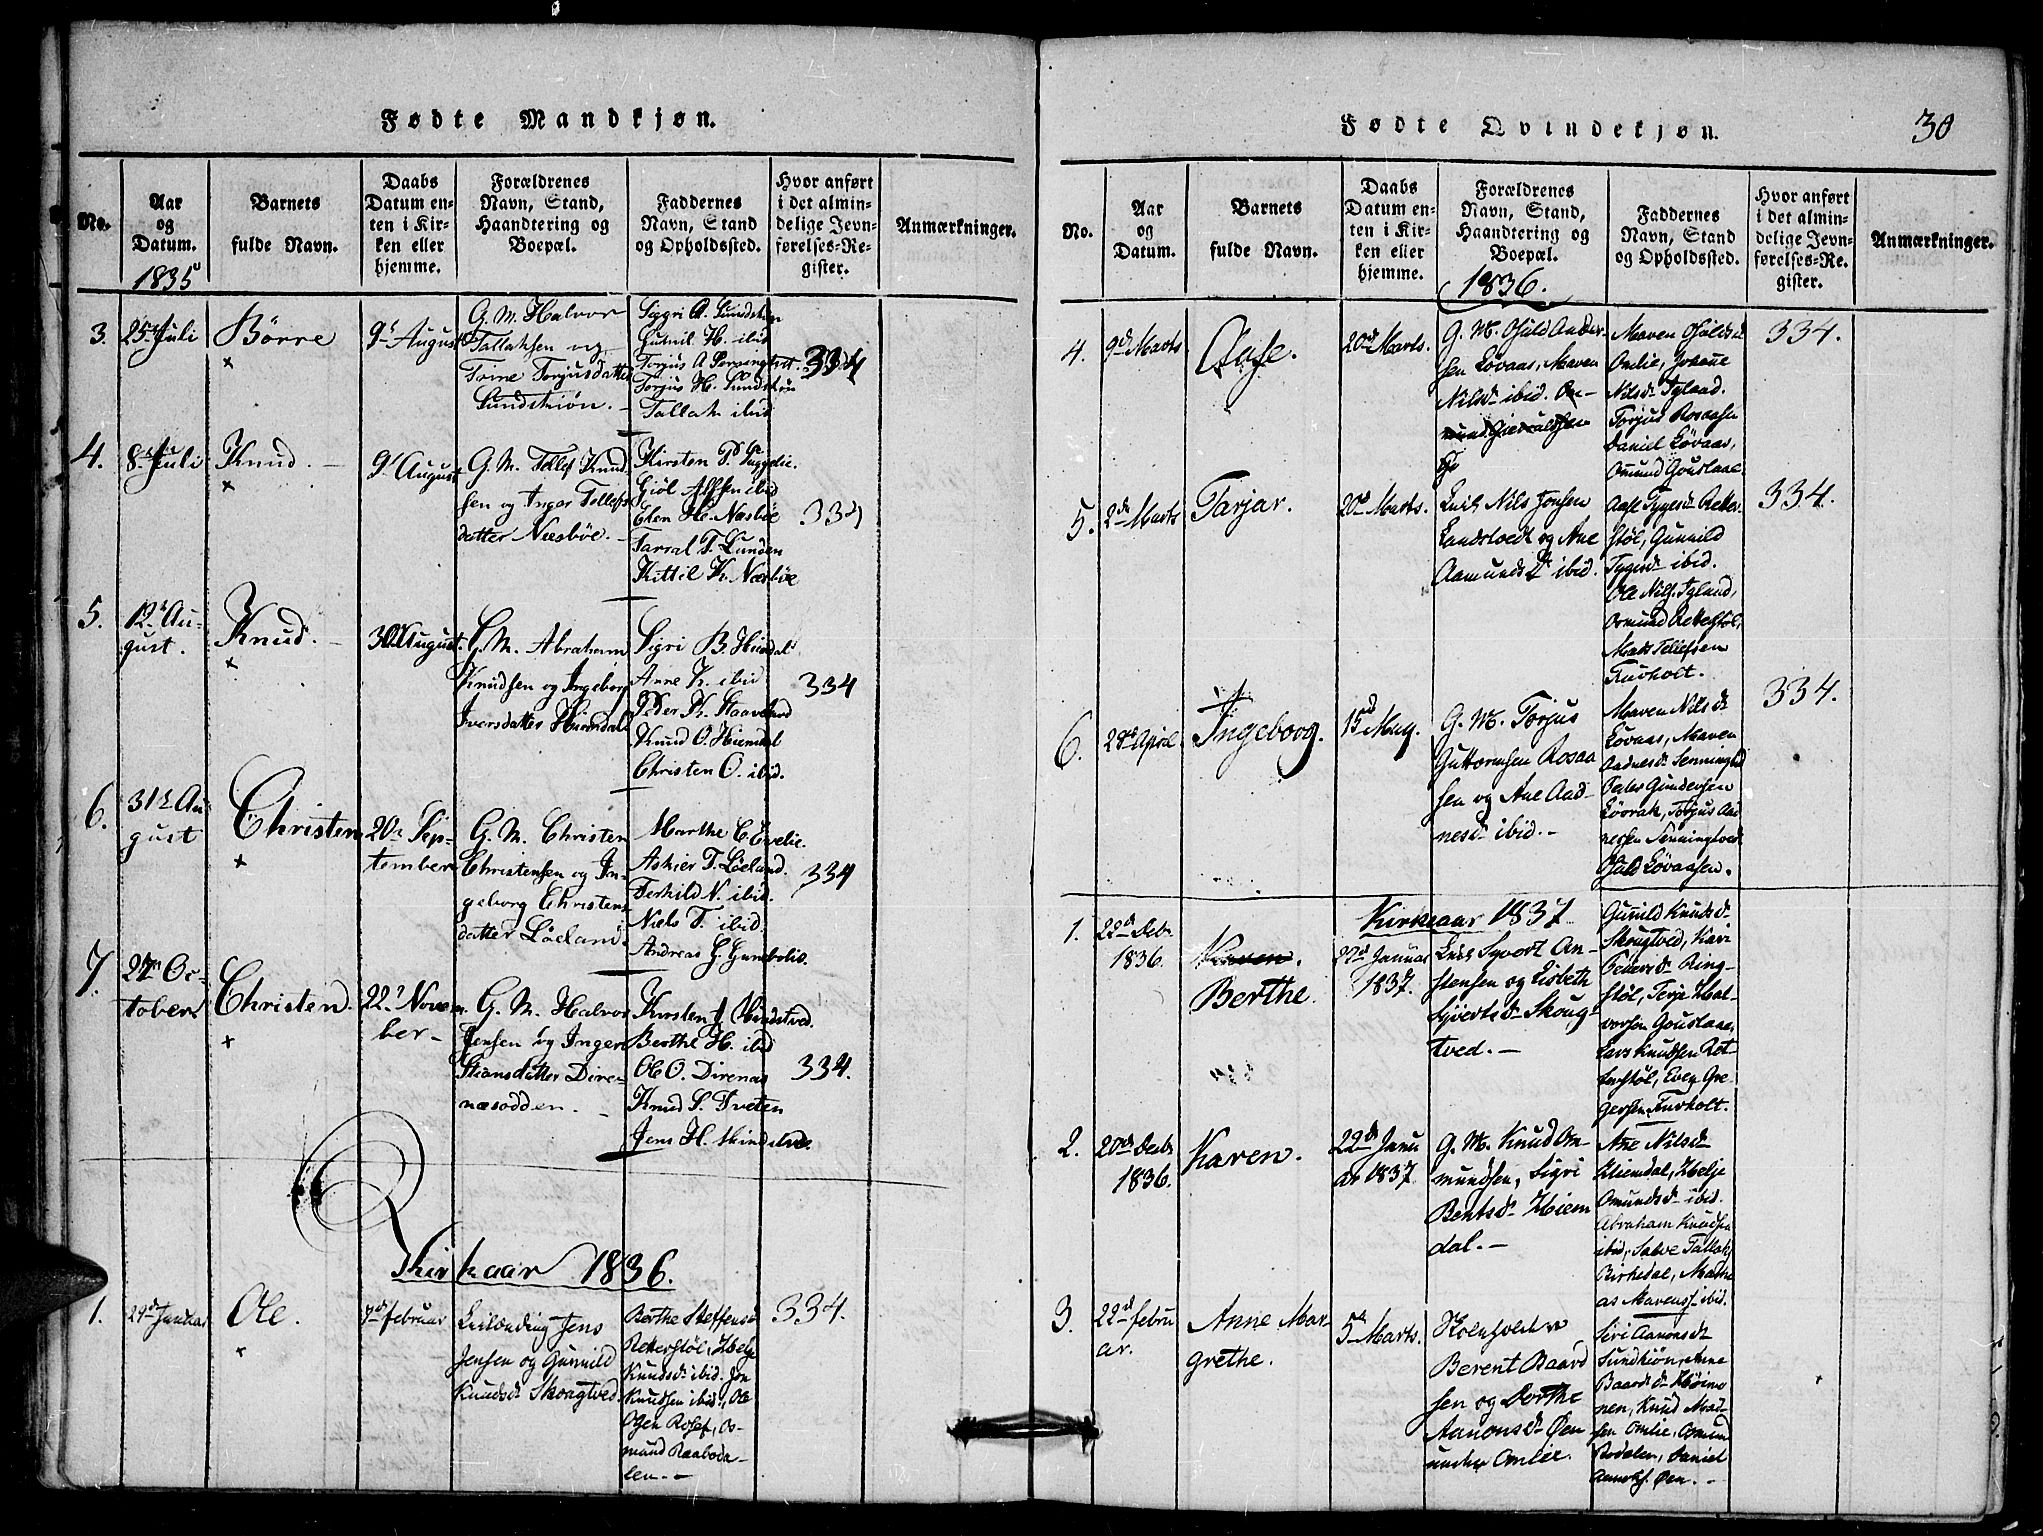 Fødte Mandkjøn.
No.
Aar
og
Datum.
1835
Barnets
fulde Navn.
Daabs
Datum en-
ten i Kir-
ken eller
hjemme.
Forældrenes
Navn, Stand,
Haandtering og
Boepæl.
Faddernes
Navn, Stand
og Opholdssted.
Hvor anført
i det almin-
delige Jevn-
førelses-Re-
gister.
Anmærkninger.
3.
25 Juli
Børre
×
9 August
G. M. Halvor
Tallaksen og
Trine Torjusdatter
Sundskiøn.
Siggri A. Sundskiøn
Gunnil H. ibid
Torjus A
Torjus H. Sundskiøn
Tallak ibid
334
4.
8 Juli
Knud.
×
9 August
G. M. Tellef Knud-
sen og Inger Tellefs
datter Næsbøe.
Kirsten
Giøl ibid
Elen H. Næsbøe
Tarral T. Lunden
Kittil K. Næsbøe
334
5.
12 Au-
gust.
Knud.
×
30 August.
G. M. Abraham
Knudsen og Ingeborg
Iversdatter Hiemdal
Sigri B. Hiemdal
Anne K. ibid
Peder K.
Knud O. Hiemdal
Christen O. ibid.
334
6.
31 Au
gust
Christen
×
20 Sep-
tember
G. M. Christen
Christensen og In-
geborg Christens
datter Löeland.
Marthe C.
Askier T. Löeland.
Terkild N. ibid.
Niels T. ibid.
Andreas G.
334
7.
27 Oc-
tober
Christen.
×
22 Novem
ber
G. M. Halvor
Jensen og Inger
Stiansdatter Dire-
næsodden.
Kirsten
Berthe H. ibid
Ole O. Direnæs
Knud S. Tveten
Jens H.
334.
Kirkaar 1836.
1.
29d Januar
Ole.
×
7d februar
Leilænding Jens
Jensen og Gunnild
Knudsd Skougtved.
Berthe Steffensd
Retterstøl, Helje
Knudsd ibid. Jon
Knudsen ibid, Ole
Olsen Rosef, Os-
mund Raaboda-
len.
334.
Fødte Qvindekjøn.
30
No.
Aar
og
Datum.
Barnets
fulde Navn.
Daabs
Datum en-
ten i Kir-
ken eller
hjemme.
Forældrenes
Navn, Stand,
Haandtering og
Boepæl.
1836.
Faddernes
Navn, Stand
og Opholdssted.
Hvor anført
i det almin-
delige Jevn-
førelses-Re-
gister.
Anmærkninger.
4.
9d Marts
Aase.
20d Marts.
G. M. Osuld Ander-
sen Løvaas, Maren
Nilsd ibid.
Maren Osuldsd
Omlie, Josæne
Nilsd Igland.
Torjus Rosaasen
Daniel Løvaas,
Osmund Gouslaae
334.
5.
2d Marts
Tarjar.
20d Marts.
Leil. Nils Jonsen
Landstoedt og Ane
Aamundsd ibid.
Aase Tygesd Retter-
støl, Gunnild
Tygesd ibid.
Ole Nils. Igland,
Osmund Retterstøl,
Mads Tellefsen
Furholt.
334.
6.
29d April.
Ingeborg.
15d May.
G. M. Torjus
Guttormsen Rosaa
sen og Ane Aad-
nesd ibid.
Maren Nilsd
Løvaas, Maren
Aadnesd
Peder Gundersen
Torjus Aad-
nesen
Osuld Løvaasen.
334.
Kirkeaar 1837
1.
22d Debr
1836.
Karen.
Berthe
22d Januar
1837.
Leil. Syvert An-
stensen og Lisbeth
Syvertsd Skoug-
tved.
Gunild Knudsd
Skougtved, Kari
Pedersd Ring-
støl, Terje Hal-
vorsen Gouslaae,
Lars Knudsen Ret-
terstøl, Even Gre-
gersen Furholt.
2.
20d Debr
1836.
Karen.
22d Janu
ar 1837.
G. M. Knud Om-
mundsen, Sigri
Bentsd Hiem
dal.
Ane Nilsd
Hiemdal, Helje
Omundsd ibid.
Abraham Knudsen
ibid, Salve Tallaks.
Birkedal, Mathi
as Mavenss. ibid.
3.
22d febru
ar.
Anne Mar-
grethe.
5d Marts.
Berent Baard
sen og Dorthe
Aanonsd Øen
under Omlie.
Siri Aanonsd
Sundkiøn, Anne
Baardsd
nen, Knud Mad-
sen Omlie,
Daniel
Øen.